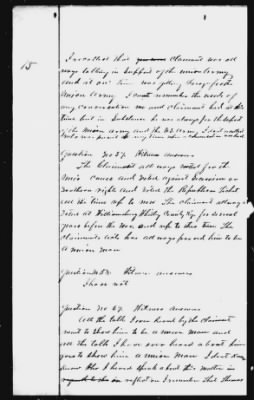 15
I recolled that claimant was all
ways talking in Support of the union army
and at one time was
Union Army I cannot remember the words of
any conversation me and claimant had at this
time but in Substance he was always for the support
of the Union Army and the U.S. Army
Question No 57. Witness answers
The Claimant all ways voted for the
Union cause and voted against Secession or
Southern rights and voted the Republican Ticket
all the time up to now The claimant always
voted at Williamsburg Whitley County Ky for several
years before the war and up to this time The
Claimants acts has all ways proved him to be
a Union man
Question No 58. Witness answers
I have not
Question No 67. Witness answers
All the talk I ever heard by the claimant
went to show him to be a union man and
all the talk I have ever heard about him
goes to show him a union man I dont
know Who I heard speak about this matter in
reflect on I remember that Thomas